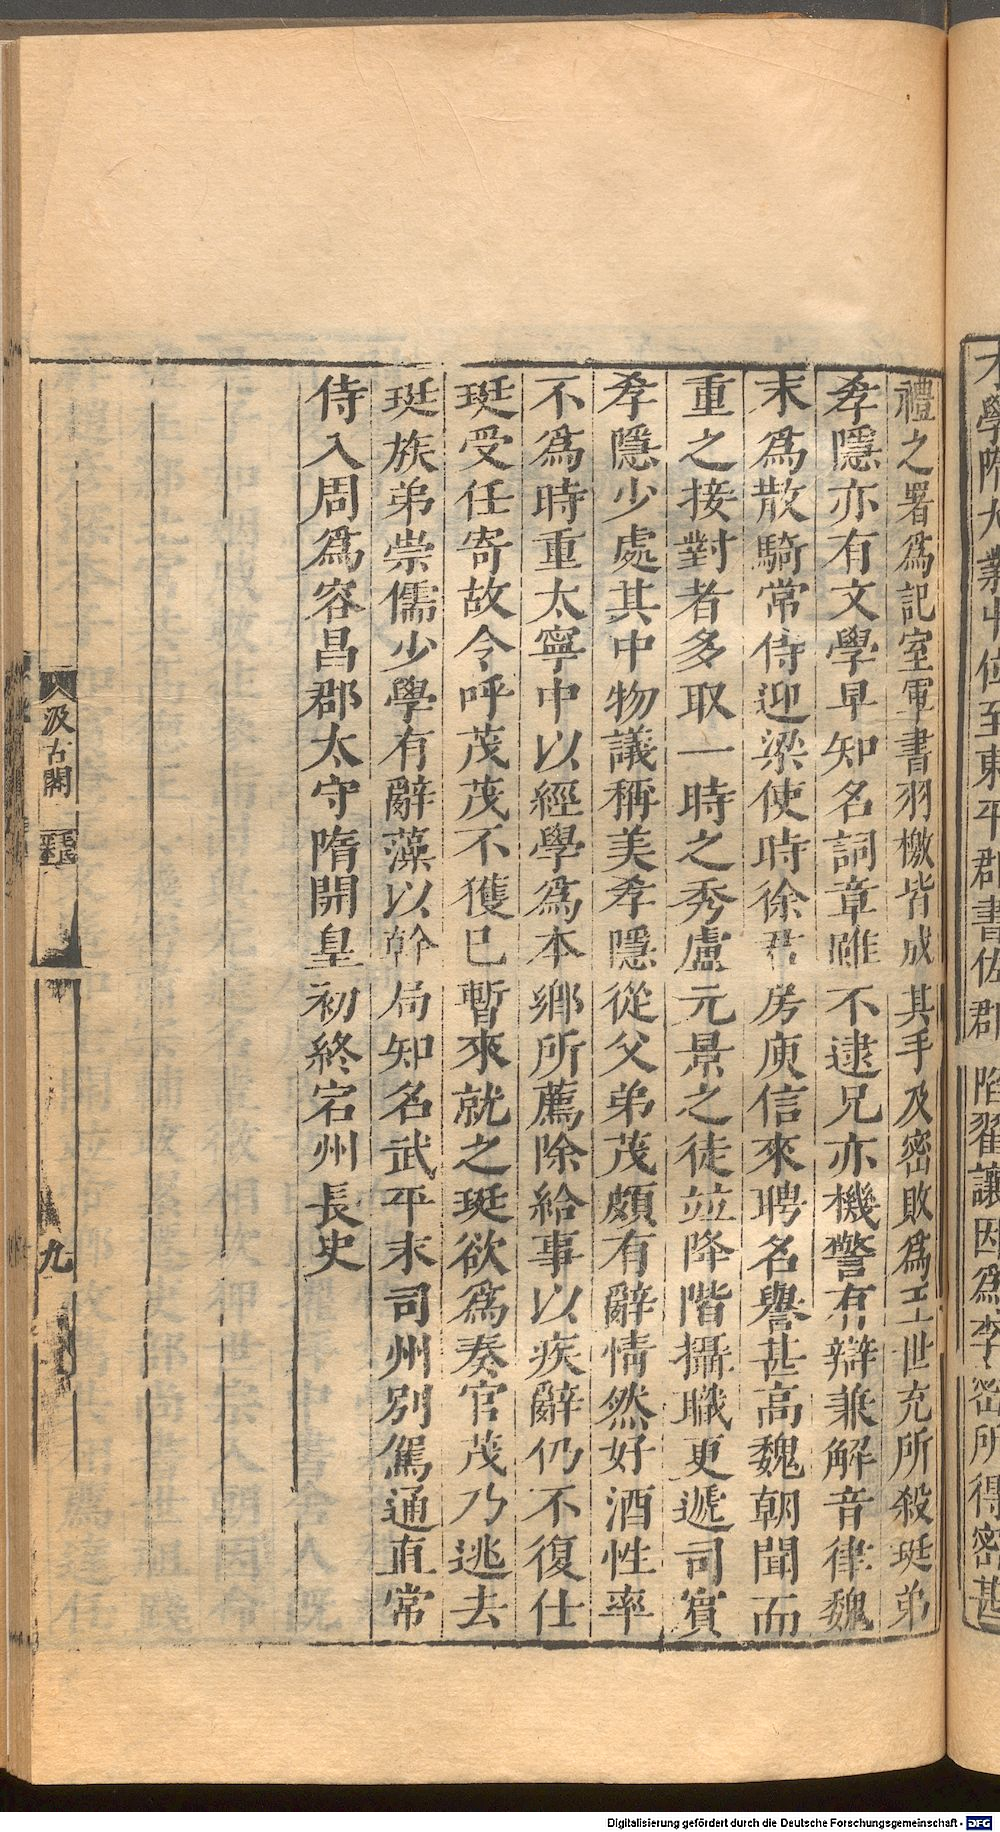 大學隋大業中位至東平郡書佐郡陷翟讓因爲李密所得密甚
禮之署爲記室軍書羽檄皆成其手及密敗爲王世充所殺珽弟
孝隱亦有文學早知名詞章雖不逮兄亦機警有辯兼解音律魏
末爲散騎常侍迎梁使時徐君房庾信來聘名譽甚高魏朝聞而
重之接對者多取一時之秀盧元景之徒並降階攝職更遞司賓
孝隱少處其中物議稱美孝隱從父弟茂頗有辭情然好酒性率
不爲時重太寧中以經學爲本鄉所薦除給事以疾辭仍不復仕
珽受任寄故令呼茂茂不獲已暫來就之珽欲爲奏官茂乃逃去
珽族弟崇儒少學有辭藻以幹局知名武平末司州別駕通直常
侍入周爲容昌郡太守隋開皇初終宕州長史
汲古閣
九
Digitalisierung gefördert durch die Deutsche Forschungsgemeinschaft - DFG